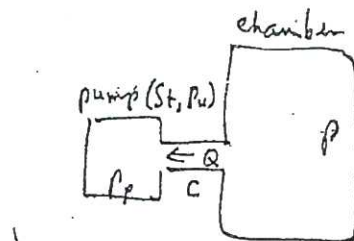 chamber
pump (St, Pu)
P
← Q
Pp
C